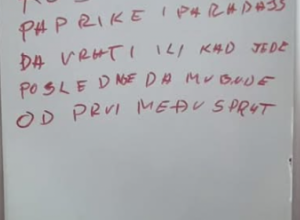 PAPRIKE I PARADAJS
DA VRATI ILI KAD JEDE
POSLE DNE DA MU BUDE
OD PRVI MEĐU SPRAT